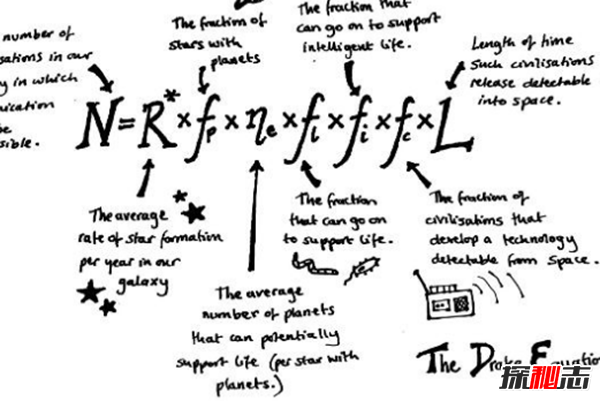 number of
sations in our
y in which
ication
be
sible.
The fraction of
stars with
planets
The fraction that
can go on to support
intelligent life.
Length of time
such civilisations
release detectable
into space.
N=R*×fp×ηe×fl×fi×fc×L
The average
rate of star formation
per year in our
galaxy
The average
number of planets
that can potentially
support life (per star with
planets.)
The fraction
that can go on
to support life.
The fraction of
civilisations that
develop a technology
detectable from space.
The Drake Equation
探秘志